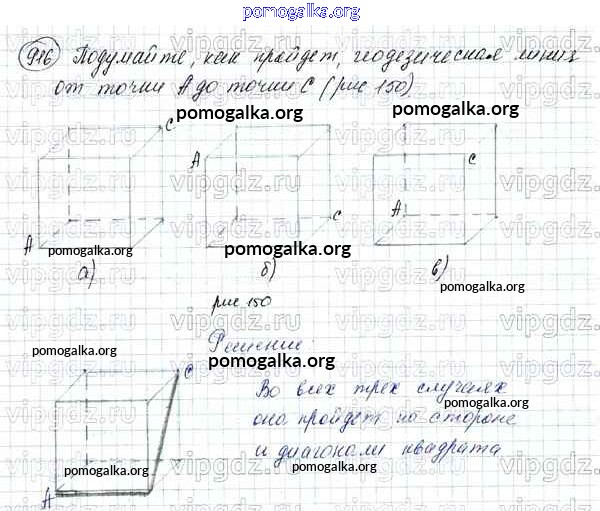 pomogalka.org
916 Подумайте, как пройдет, геодезическая линия
от точки А до точки С (рис 150).
pomogalka.org pomogalka.org pomogalka.org
C
A
C
A C
C
A
pomogalka.org pomogalka.org
а) б) в)
pomogalka.org
рис 150
vipgdz.ru vipgdz.ru vipgdz.ru
Решение:
pomogalka.org
pomogalka.org
C
Во всех трех случаях
pomogalka.org
она пройдет по стороне
и диагонали квадрата
pomogalka.org pomogalka.org
A